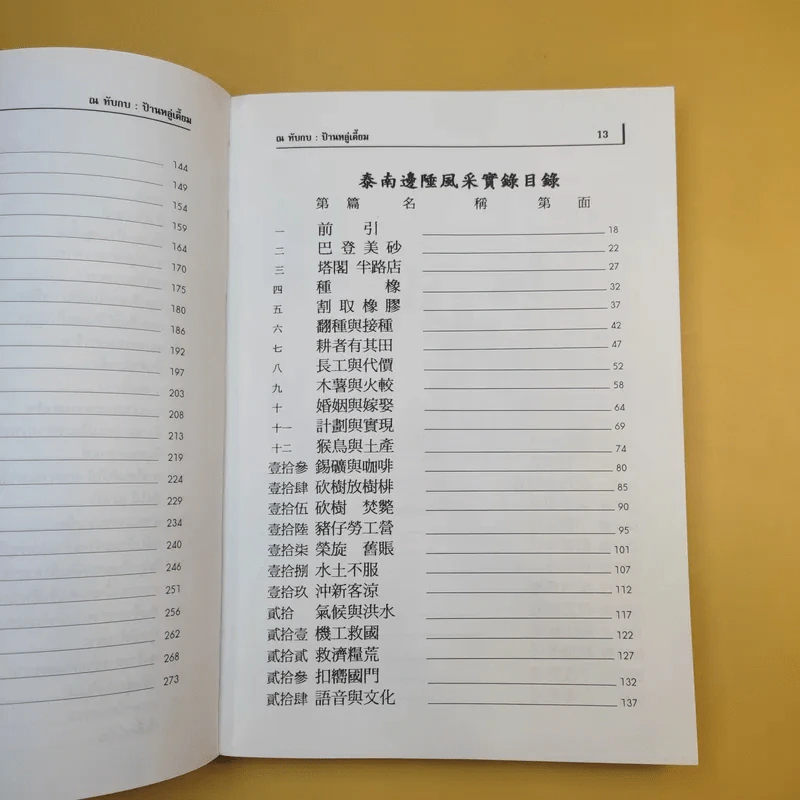 ณ ทับกบ : ป๊านหลู่เตี้ยม
144
149
154
159
164
170
175
180
186
192
197
203
208
213
219
224
229
234
240
246
251
256
262
268
273
ณ ทับกบ : ป๊านหลู่เตี้ยม 13
泰南邊陲風采實錄目錄
第 篇 名 稱 第 面
一 前 引 18
二 巴登美砂 22
三 塔閣 半路店 27
四 種 橡 32
五 割取橡膠 37
六 翻種與接種 42
七 耕者有其田 47
八 長工與代價 52
九 木薯與火較 58
十 婚姻與嫁娶 64
十一 計劃與實現 69
十二 猴鳥與土產 74
壹拾參 錫礦與咖啡 80
壹拾肆 砍樹放樹桻 85
壹拾伍 砍樹 焚斃 90
壹拾陸 豬仔勞工營 95
壹拾柒 榮旋 舊賬 101
壹拾捌 水土不服 107
壹拾玖 沖新客涼 112
貳拾 氣候與洪水 117
貳拾壹 機工救國 122
貳拾貳 救濟糧荒 127
貳拾參 扣嚮國門 132
貳拾肆 語音與文化 137